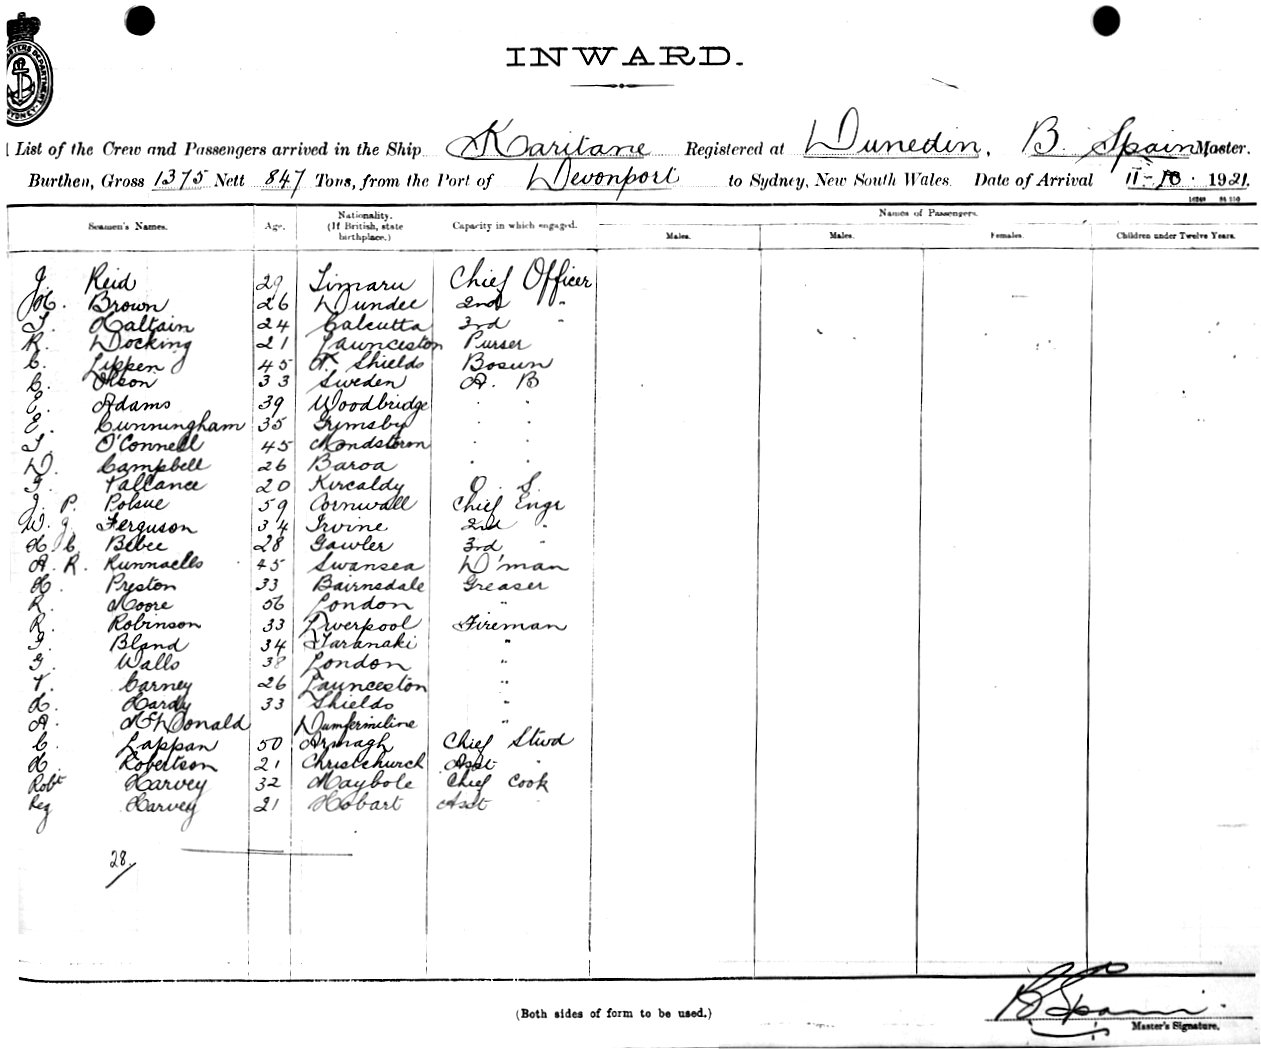 INWARD.
List of the Crew and Passengers arrived in the Ship Karitane Registered at Dunedin, B. Spain Master.
Burthen, Gross 1375 Nett 847 Tons, from the Port of Devonport to Sydney, New South Wales. Date of Arrival 11-10. 1921.
Seamen's Names. Age. Nationality. (If British, state birthplace.) Capacity in which engaged. Names of Passengers.
Males. Males. Females. Children under Twelve Years.
J. Reid 29 Timaru Chief Officer
Brown 26 Dundee 2nd "
T. Haltain 24 Calcutta 3rd "
R. Docking 21 Launceston Purser
C. Lippen 45 N. Shields Bosun
C. Olson 33 Sweden A. B
E. Adams 39 Woodbridge " "
E. Cunningham 35 Grimsby " "
T. O'Connell 45 " "
D. Campbell 26 Baroa " "
Tallance 20 Kircaldy O. S.
J. P. Polsue 59 Cornwall Chief Engr
W. J. Ferguson 34 Irvine 2nd "
H C Bebee 28 Gawler 3rd "
A. R. Runnaells 45 Swansea D'man
H. Preston 33 Bairnsdale Greaser
R. Moore 56 London "
R. Robinson 33 Liverpool Fireman
Bland 34 Taranaki "
G. Walls 38 London "
Carney 26 Launceston "
H. Hardy 33 Shields "
A. McDonald Dumfermiline "
C. Lappan 50 Armagh Chief Stwd
H. Robertson 21 Christchurch Asst "
Robt Harvey 32 Maybole Chief Cook
Reg Harvey 21 Hobart Asst "
28.
(Both sides of form to be used.)
B Spain.
Master's Signature.